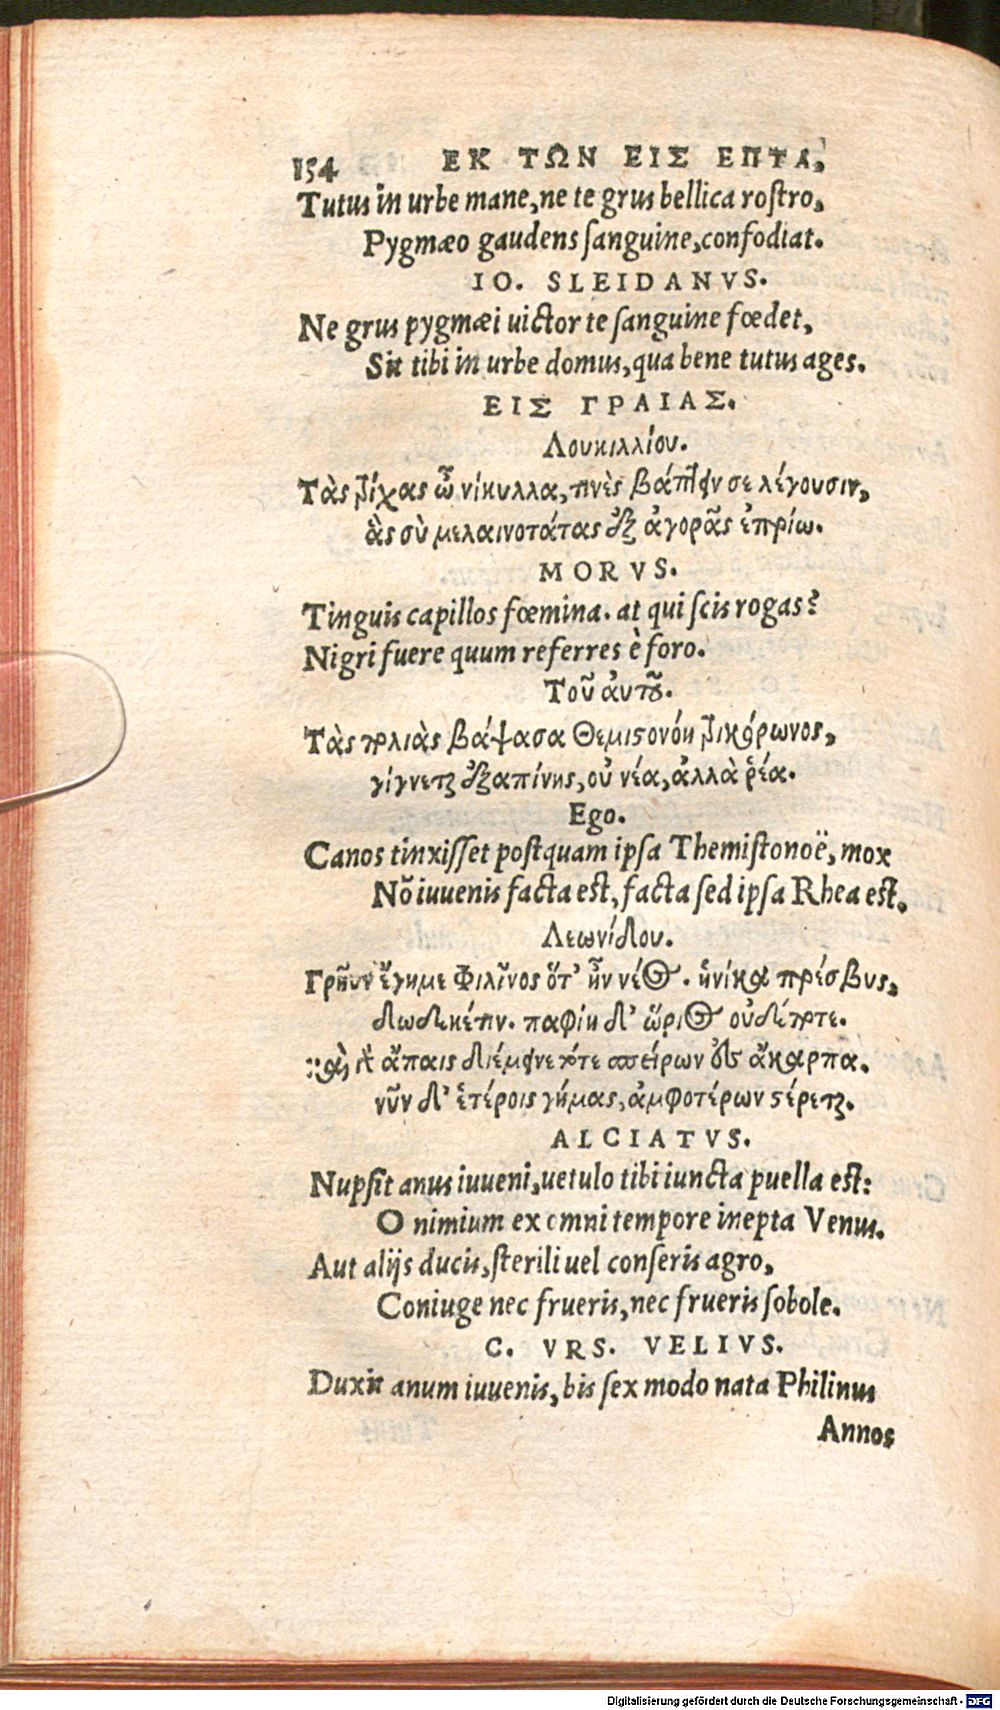 154 ΕΚ ΤΩΝ ΕΙΣ ΕΠΤΑ,
Tutus in urbe mane, ne te grus bellica roſtro,
Pygmæo gaudens ſanguine, confodiat.
IO. SLEIDANVS.
Ne grus pygmæi uictor te ſanguine fœdet,
Sit tibi in urbe domus, qua bene tutus ages.
ΕΙΣ ΓΡΑΙΑΣ.
Λουκιλλίου.
Τὰς τρίχας ὦ νίκυλλα, τινὲς βάπτειν σε λέγουσιν,
ἃς σὺ μελαινοτάτας ἐξ ἀγορᾶς ἐπρίω.
MORVS.
Tinguis capillos fœmina. at qui ſcis rogas?
Nigri fuere quum referres è foro.
Τοῦ ἀυτοῦ.
Τὰς πολιὰς βάψασα Θεμιστονόη τρικόρωνος,
γίγνεται ἐξαπίνης, οὐ νέα, ἀλλὰ ῥέα.
Ego.
Canos tinxiſſet poſtquam ipſa Themiſtonoë, mox
Nō iuuenis facta eſt, facta ſed ipſa Rhea eſt.
Λεωνίδου.
Γρῆυν ἔγημε Φιλῖνος ὅτ' ἦν νέος. ἡνίκα πρέσβυς,
δωδεκέτιν. παφίη δ' ὥριος οὐδέποτε.
καὶ ἄπαις διέμεινε ποτε σπείρων εἰς ἄκαρπα.
νῦν δ' ἑτέροις γήμας, ἀμφοτέρων στέρεται.
ALCIATVS.
Nupſit anus iuueni, uetulo tibi iuncta puella eſt:
O nimium ex omni tempore inepta Venus.
Aut alijs ducis, ſterili uel conſeris agro,
Coniuge nec frueris, nec frueris ſobole.
C. VRS. VELIVS.
Duxit anum iuuenis, bis ſex modo nata Philinus
Annos
Digitalisierung gefördert durch die Deutsche Forschungsgemeinschaft - DFG